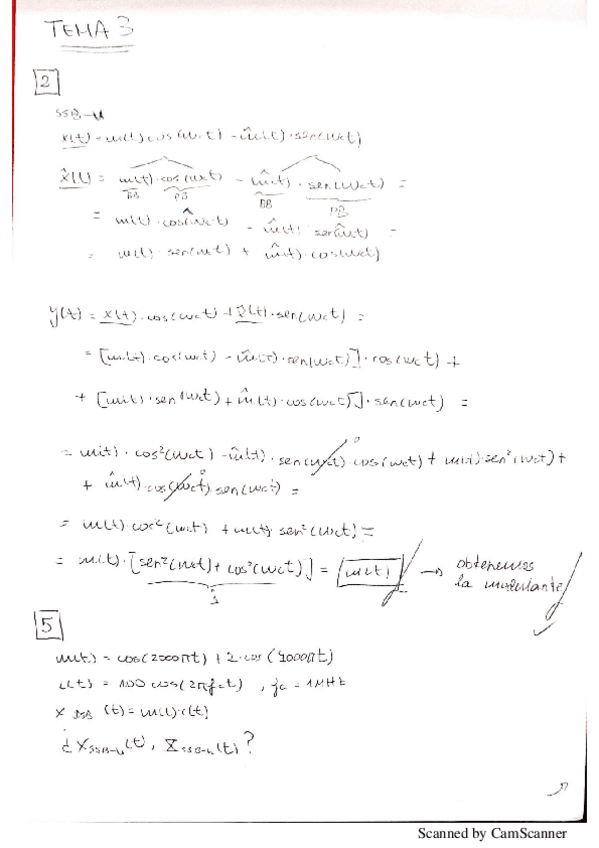 TEMA 3
2
SSB-U
x(t) = m(t) cos(wct) - m̂(t)·sen(wct)
x̂(t) = m(t)·cos(wct) - m̂(t)·sen(wct) =
BB PB BB PB
= m(t)·coŝ(wct) - m̂(t)·sen̂(wct) =
= m(t)·sen(wct) + m̂(t)·cos(wct)
y(t) = x(t)·cos(wct) + x̂(t)·sen(wct) =
= [m(t)·cos(wct) - m̂(t)·sen(wct)]·cos(wct) +
+ [m(t)·sen(wct) + m̂(t)·cos(wct)]·sen(wct) =
= m(t)·cos²(wct) - m̂(t)·sen(wct)·cos(wct) + m(t)·sen²(wct) +
+ m̂(t)·cos(wct)·sen(wct) =
= m(t)·cos²(wct) + m(t)·sen²(wct) =
= m(t)·[sen²(wct) + cos²(wct)] = m(t) → obtenemos
1 la modulante
5
m(t) = cos(2000πt) + 2·cos(4000πt)
c(t) = 100 cos(2πfct), fc = 1MHz
x (t) = m(t)·c(t)
¿XSSB-U(t), XSSB-L(t)?
Scanned by CamScanner